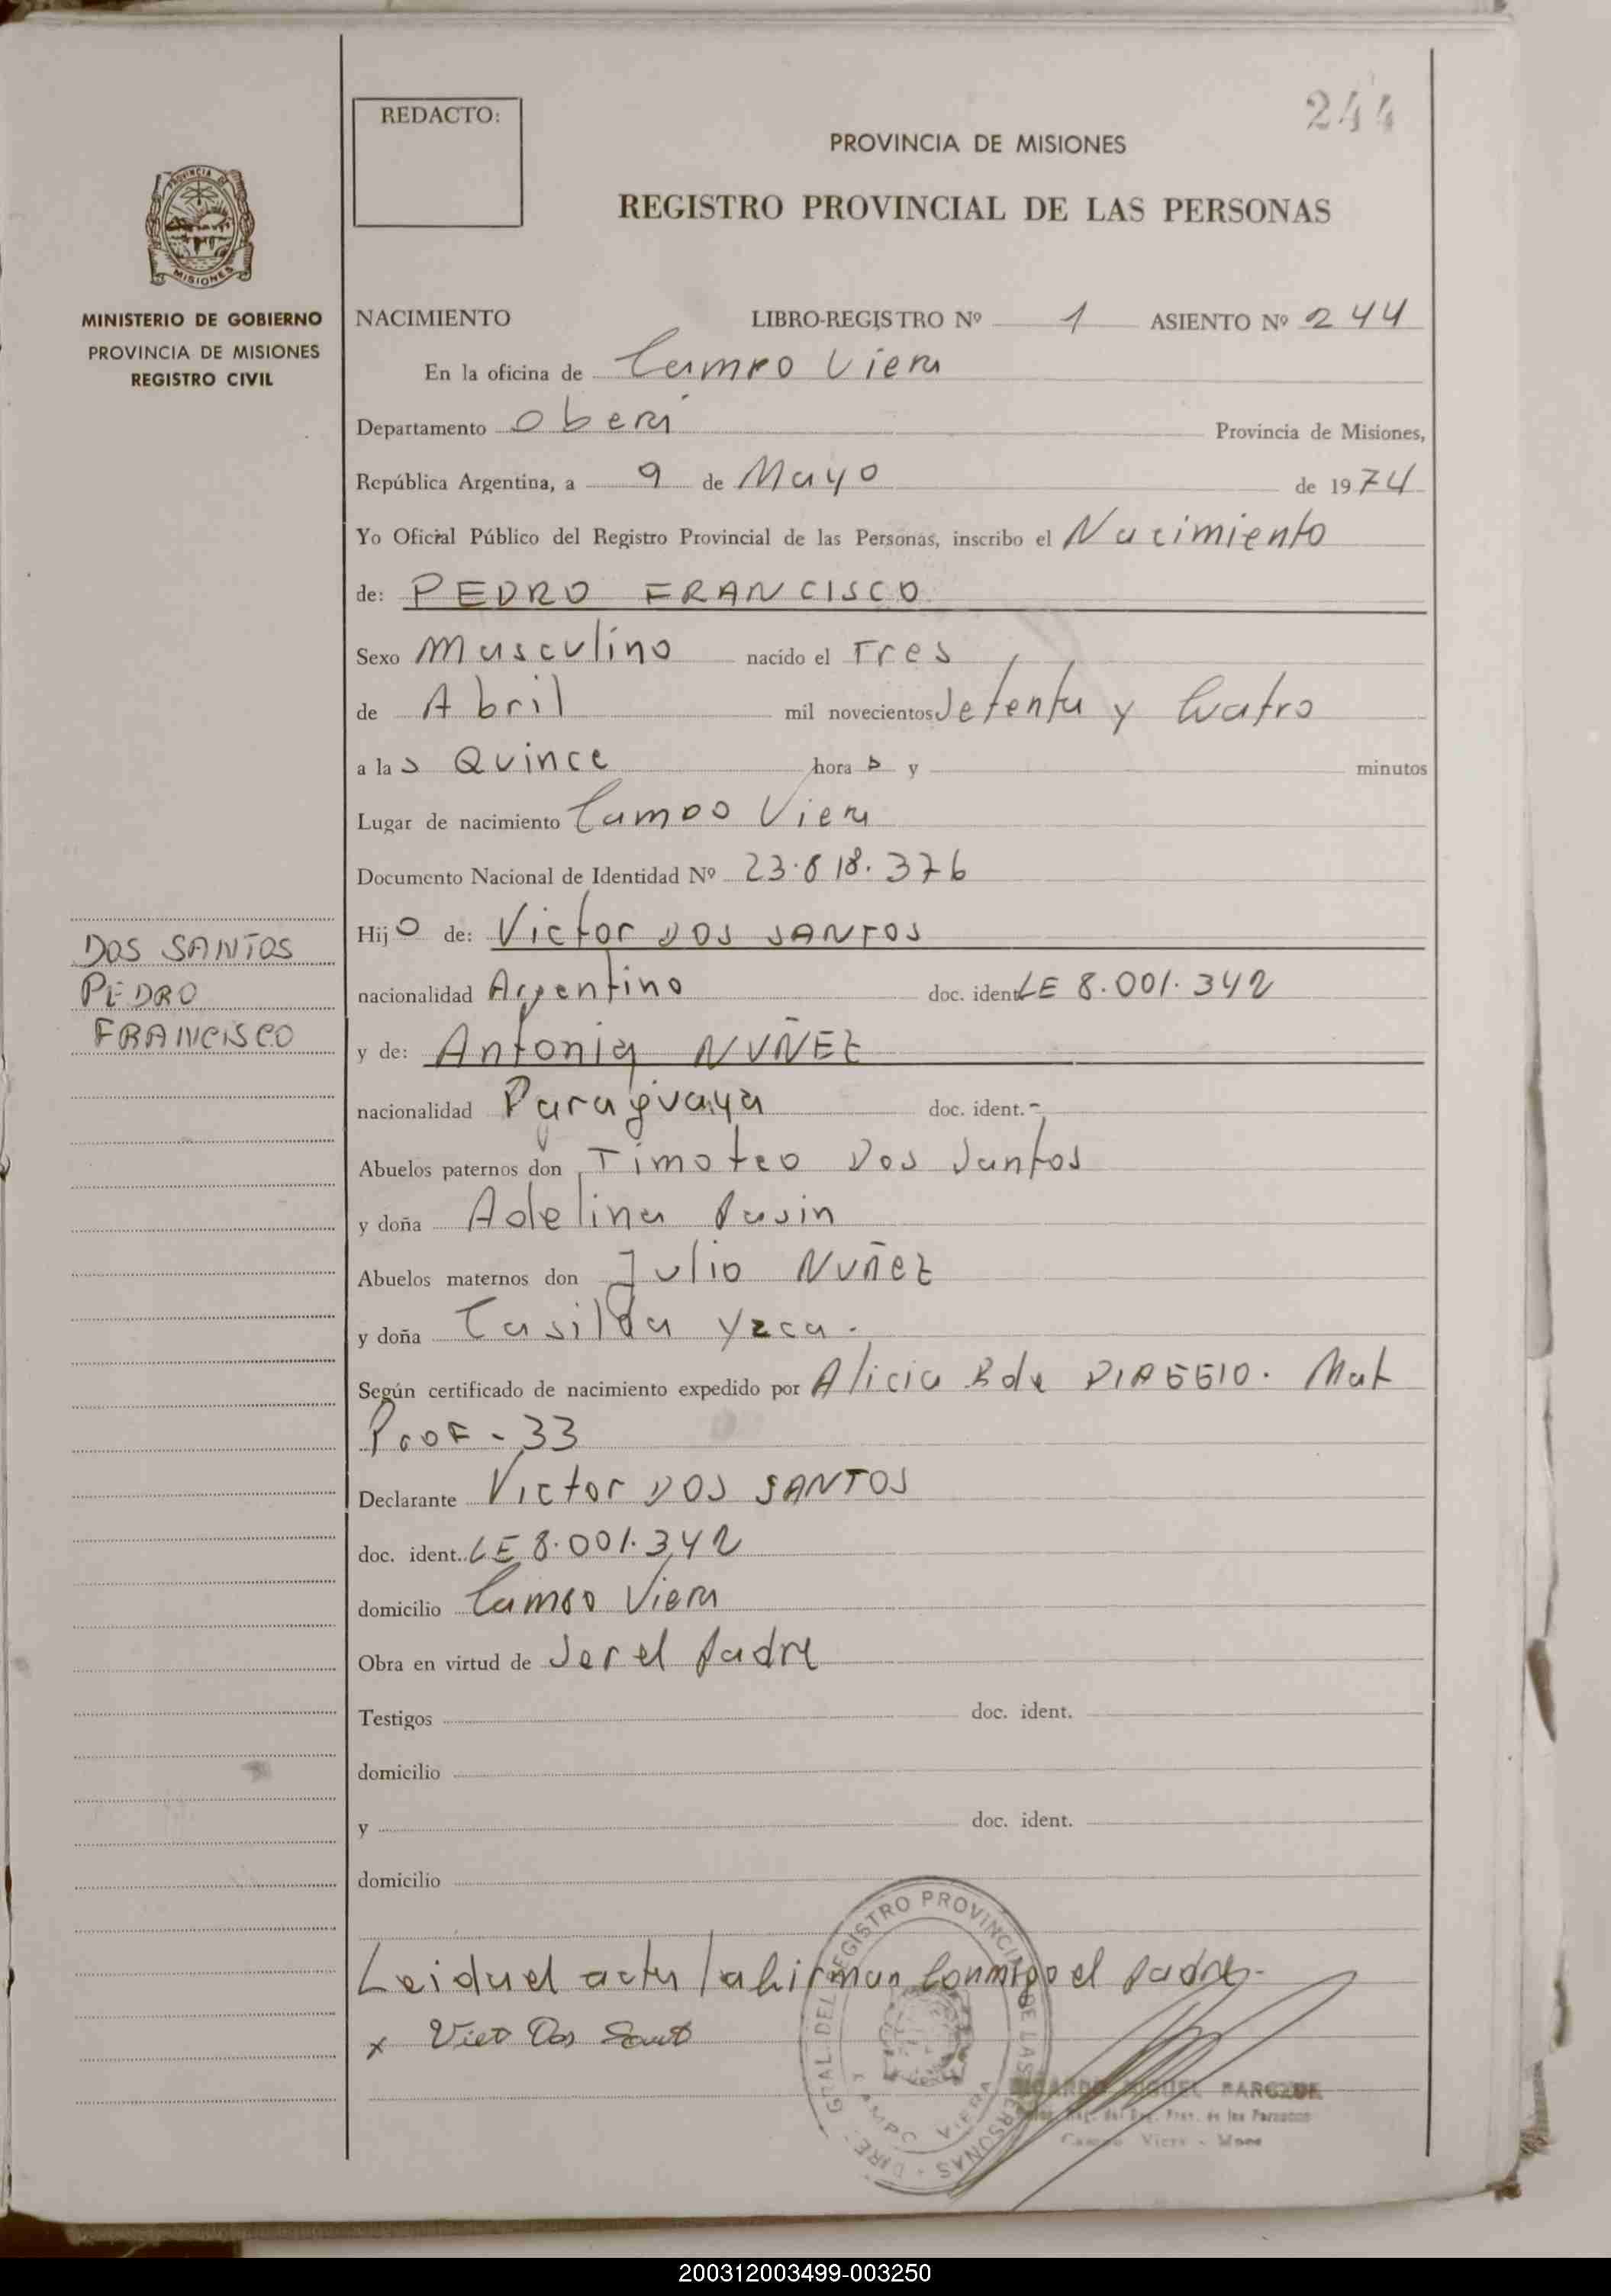 244
REDACTO:
PROVINCIA DE MISIONES
REGISTRO PROVINCIAL DE LAS PERSONAS
PROVINCIA DE
MISIONES
MINISTERIO DE GOBIERNO
PROVINCIA DE MISIONES
REGISTRO CIVIL
NACIMIENTO LIBRO-REGISTRO Nº 1 ASIENTO Nº 244
En la oficina de Campo Viera
Departamento Oberá Provincia de Misiones,
República Argentina, a 9 de Mayo de 1974
Yo Oficial Público del Registro Provincial de las Personas, inscribo el Nacimiento
de: PEDRO FRANCISCO
Sexo Masculino nacido el Tres
de Abril mil novecientos Setenta y Cuatro
a las Quince horas y minutos
Lugar de nacimiento Campo Viera
Documento Nacional de Identidad Nº 23.818.376
Hijo de: Victor DOS SANTOS
nacionalidad Argentino doc. ident. LE 8.001.342
y de: Antonia NUÑEZ
nacionalidad Paraguaya doc. ident. -
Abuelos paternos don Timoteo Dos Santos
y doña Adelina
Abuelos maternos don Julio Nuñez
y doña Casilda
Según certificado de nacimiento expedido por Alicia B de Mat
Prof - 33
Declarante Victor DOS SANTOS
doc. ident. LE 8.001.342
domicilio Campo Viera
Obra en virtud de Ser el Padre
Testigos doc. ident.
domicilio
y doc. ident.
domicilio
Leida el acta la firman Conmigo el Padre.-
x Dos
DOS SANTOS
PEDRO
FRANCISCO
DIRE. GRAL. DEL REGISTRO PROVINCIAL DE LAS PERSONAS
CAMPO VIERA
RICARDO MIGUEL
del Reg. Prov. de las Personas
Campo Viera - Mnes
200312003499-003250